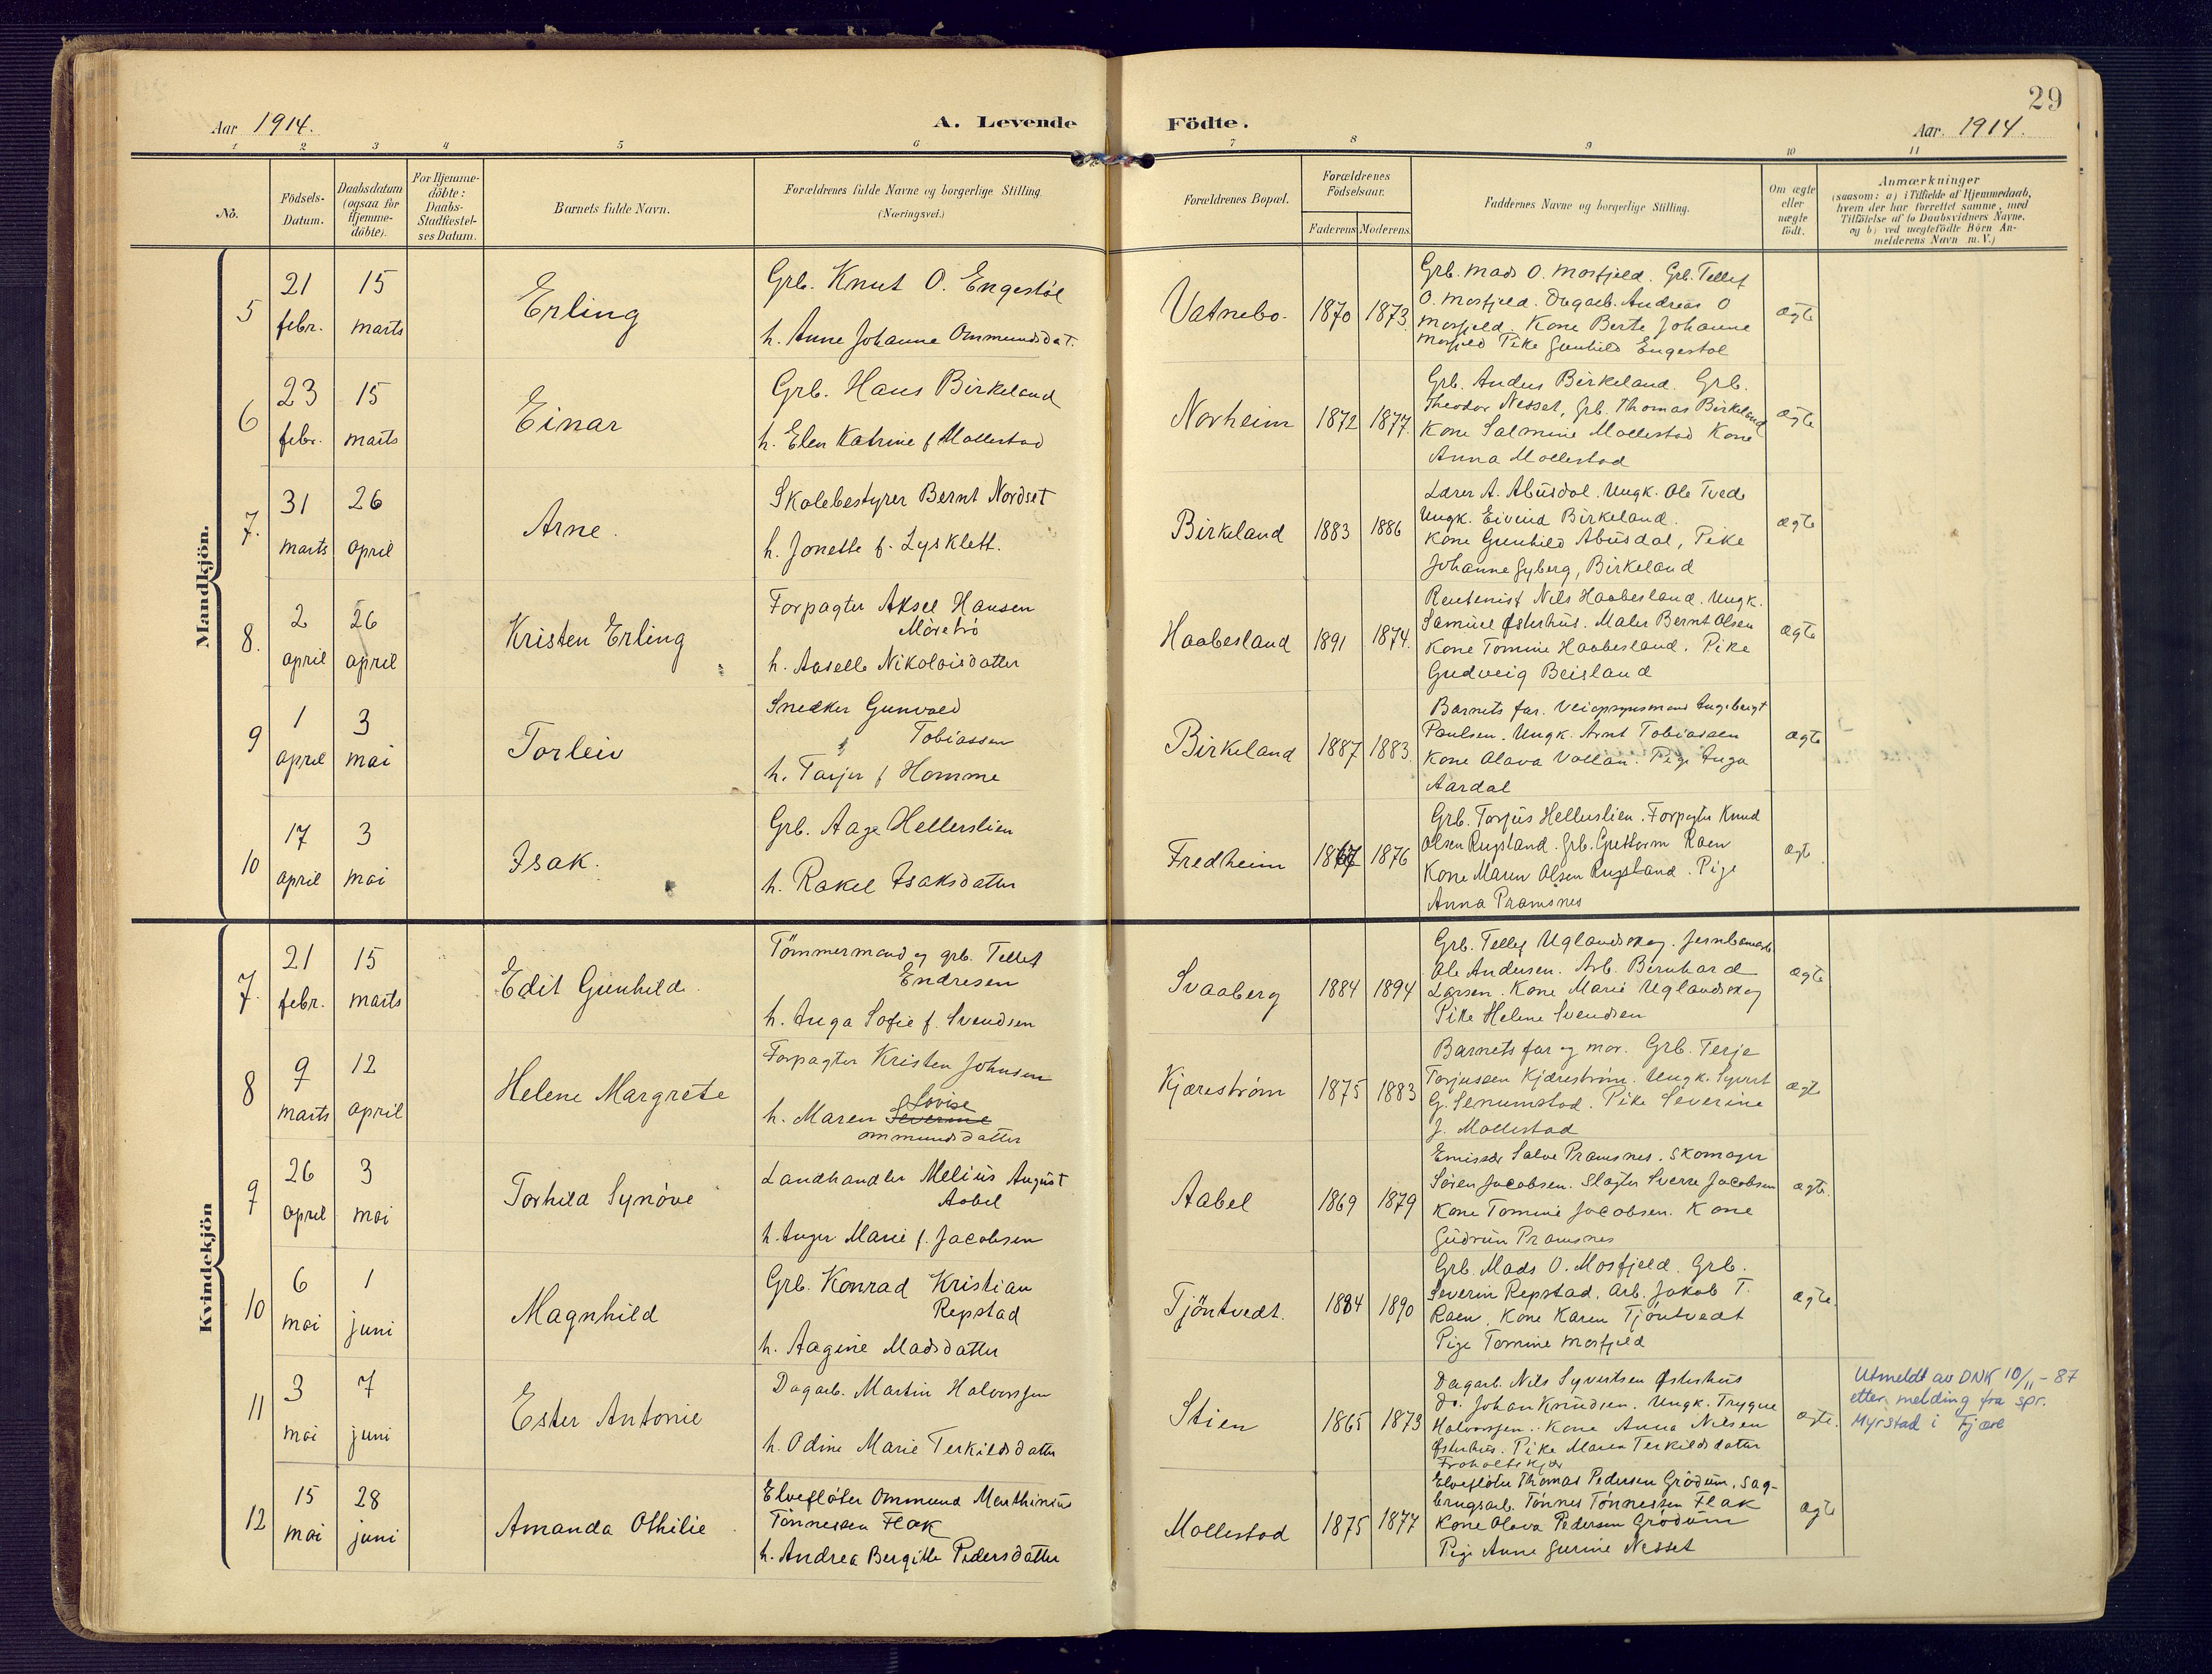 29
Aar 1914.
A. Levende
Födte.
Aar. 1914.
1 2 3 4 5 6 7 8 9 10 11
No.
Födsels-
Datum.
Daabsdatum
(ogsaa for
Hjemme-
döbte).
For Hjemme-
döbte:
Daabs-
Stadfæstel-
ses Datum.
Barnets fulde Navn.
Forældrenes fulde Navne og borgerlige Stilling.
(Næringsvei.)
Forældrenes Bopæl.
Forældrenes
Födselsaar.
Faderens Moderens.
Faddernes Navne og borgerlige Stilling.
Om ægte
eller
uægte
födt.
Anmærkninger
(saasom: a) i Tilfælde af Hjemmedaab,
hvem der har forrettet samme, med
Tilföielse af to Daabsvidners Navne,
og b) ved uægtefödte Börn An-
melderens Navn m.V.)
Mandkjön.
5
21
febr.
15
marts
Erling
Grb. Knut O. Engestöl
h. Anne Johanne Ommundsdat.
Vatnebo.
1870
1873.
Grb. Mads O. Mosfjeld. Grb. Tellef
O. Mosfjeld. Dagarb. Andreas O
Mosfjeld. Kone Berte Johanne
Mosfjeld Pike Gunhild Engestøl
ægte
6
23
febr.
15
marts
Einar
Grb. Hans Birkeland
h. Elen Katrine f Mollestad
Norheim
1872
1877.
Grb. Anders Birkeland. Grb.
Theodor Nesset, Grb. Thomas Birkeland
Kone Salmine Mollestad Kone
Anna Mollestad
ægte
7.
31
marts
26
april
Arne.
Skolebestyrer Bernt Nordset
h. Jonette f. Lysklett.
Birkeland
1883
1886
Lærer A. Abusdal. Ungk. Ole Tvede
Ungk. Eivind Birkeland.
Kone Gunhild Abusdal, Pike
Johanne Gyberg, Birkeland
ægte
8.
2
april
26
april
Kristen Erling
Forpagter Aksel Hansen
Möretrö
h. Aaselle Nikolaisdatter
Haabesland
1891
1874.
Rentenist Nils Haabesland. Ungk.
Samuel Østerhus. Maler Bernt Olsen
Kone Tomine Haabesland. Pike
Gudveig Beisland
ægte
9
1
april
3
mai
Torleiv
Snedker Gunvald
Tobiassen
h. Tarjer f Homme
Birkeland
1887
1883.
Barnets far. Veiopsynsmand Ingebregt
Paulsen. Ungk. Arnt Tobiassen
Kone Olava Vollan. Pige Inga
Aardal
ægte
10
17
april
3
mai
Isak.
Grb. Aage Hellerslien
h. Rakel Isaksdatter
Fredheim
1867
1876
Grb. Torjus Hellerslien. Forpagter Knud
Olsen Rugsland. Grb. Guttorm Raen
Kone Maren Olsen Rugsland. Pige
Anna Pramsnes
ægt
Kvindekjön
7.
21
febr.
15
marts
Edit Gunhild.
Tömmermand og grb. Tellef
Endresen
h. Inga Sofie f. Svendsen
Svaaberg
1884
1894
Grb. Tellef Uglandskog. Jernbanearb
Ole Andersen. Arb. Bernhard
Larsen. Kone Marie Uglandskog
Pike Helene Svendsen
ægte
8
9
marts
12
april
Helene Margrete
Forpagter Kristen Johnsen
Lovise
h. Maren Severine
Ommundsdatter
Kjærestrøm
1875
1883
Barnets far og mor. Grb. Terje
Torjussen Kjærestrøm. Ungk. Syvert
G. Senumstad. Pike Severine
J. Mollestad
ægte
9
26
april
3
mai
Torhild Synöve
Landhandler Melius August
Aabel
h. Inger Marie f. Jacobsen
Aabel
1869
1879
Emissær Salve Pramsnes. Skomager
Sören Jacobsen. Slagter Sverre Jacobsen
Kone Tomine Jacobsen. Kone
Gudrun Pramsnes
ægte.
10
6
mai
1
juni
Magnhild
Grb. Konrad Kristian
Repstad
h. Aagine Madsdatter
Tjöntvedt.
1884
1890
Grb. Mads O. Mosfjeld. Grb.
Severin Repstad. Arb. Jakob T.
Raen. Kone Karen Tjöntvedt
Pige Tomine Mosfjeld
ægte.
11
3
mai
7
juni
Ester Antonie
Dagarb. Martin Halvorssen
h. Odine Marie Terkildsdatter
Stien
1865
1873
Dagarb. Nils Syvertsen Østerhus
Do. Johan Knudsen. Ungk. Trygve
Halvorssen. Kone Anna Nilsen
Østerhus. Pike Maren Terkildsdatter
ægte.
Utmeldt av DNK 10/11-87
etter melding fra spr.
Myrstad i Fjære
12
15
mai
28
juni
Amanda Othilie
Elvefløter Ommund Marthinius
Tönnessen Flak
h. Andrea Bergitte Pedersdatter
Mollestad
1875
1877
Elvefløter Thomas Pedersen Gródum. Sag-
brugsarb. Tönnes Tönnessen Flak
Kone Olava Pedersen Gródum
Pige Anne Gurine Nesset
ægte